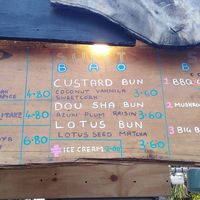 BAO
CUSTARD BUN
COCONUT VANILLA
SWEETCORN 3·60
DOU SHA BUN
AZUKI PLUM RAISIN 3·60
LOTUS BUN
LOTUS SEED MATCHA 3·60
ICE CREAM 2·00
4·80
4·80
6·80
2 BBQ
2 MUSHROO
3 BIG B